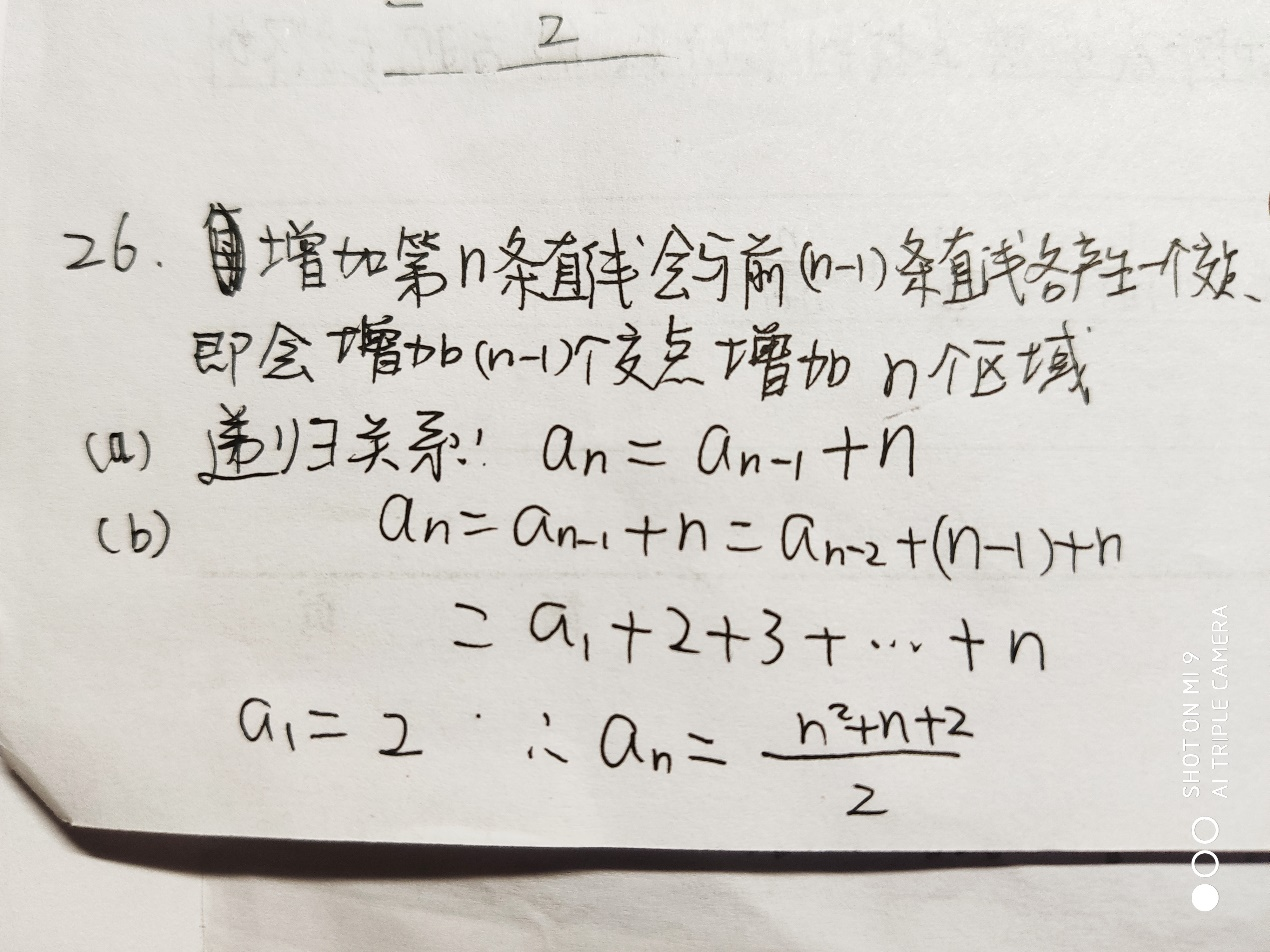 2
26. 增加第n条直线会与前(n-1)条直线各产生一个交点、
即会增加(n-1)个交点增加n个区域
(a) 递归关系: aₙ = aₙ₋₁ + n
(b) aₙ = aₙ₋₁ + n = aₙ₋₂ + (n-1) + n
= a₁ + 2 + 3 + ··· + n
a₁ = 2 ∴ aₙ = (n²+n+2)/2
SHOT ON MI 9
AI TRIPLE CAMERA